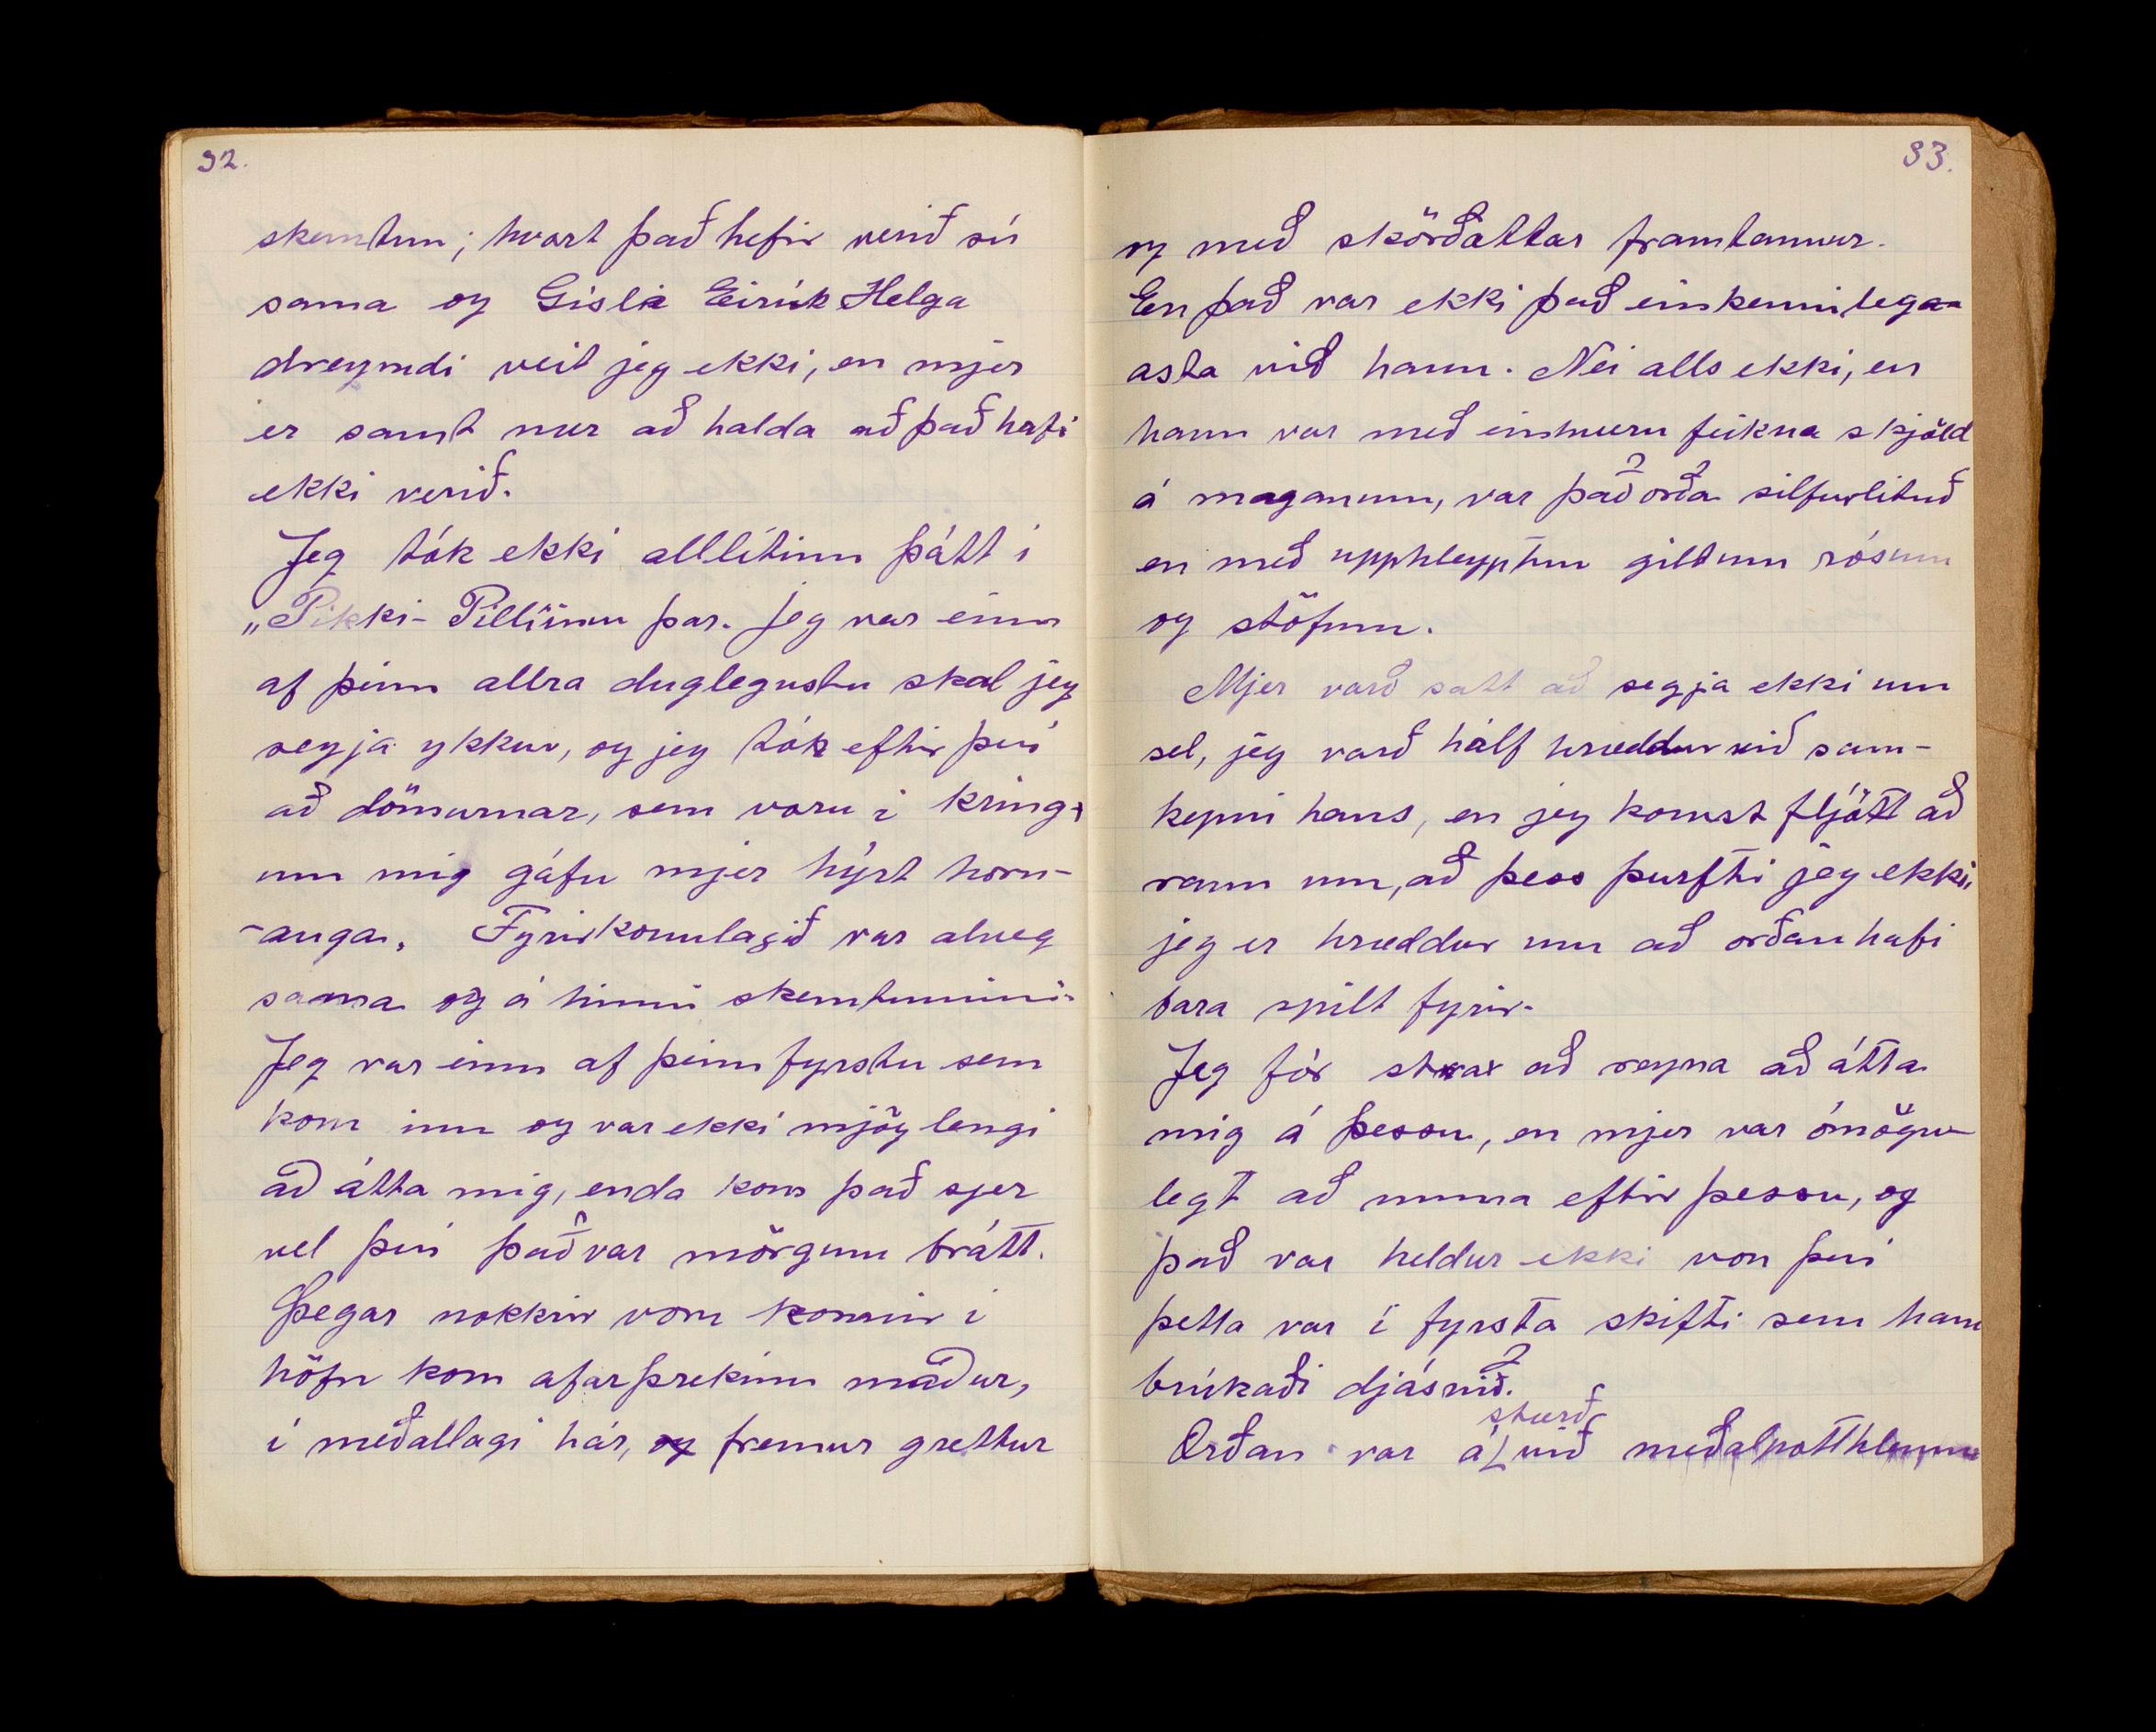 32.
skemtun; hvort það hefir verið sú
sama og Gísla Eirík Helga
dreymdi veit jeg ekki, en mjer
er samt nær að halda að það hafi
ekki verið.
Jeg tók ekki alllítinn þátt í
„Pikki-Pillíinu þar. Jeg var einn
af þeim allra duglegustu skal jeg
segja ykkur, og jeg tók eftir því
að dömurnar, sem voru í kring-
um mig gáfu mjer hýrt horn-
-auga. Fyrirkomulagið var alveg
sama og á hinni skemtuninni.
Jeg var einn af þeim fyrstu sem
kom inn og var ekki mjög lengi
að átta mig, enda kom það sjer
vel því það var mörgum brátt.
Þegar nokkrir voru komnir í
höfn kom afarþrekinn maður,
í meðallagi hár, og fremur grettur
33.
og með skörðóttar framtannur.
En það var ekki það einkennileg
asta við hann. Nei alls ekki, en
hann var með einhvern feikna skjöld
á maganum, var það orða silfurlituð
en með upphleyptum giltum rósum
og stöfum.
Mjer varð satt að segja ekki um
sel, jeg varð hálf hræddur við sam-
kepni hans, en jeg komst fljótt að
raun um, að þess þurfti jeg ekki,
jeg er hræddur um að orðan hafi
bara spilt fyrir.
Jeg fór strax að reyna að átta
mig á þessu, en mjer var ómögu-
legt að muna eftir þessu, og
það var heldur ekki von því
þetta var í fyrsta skifti sem hann
brúkaði djásnið.
stærð
Orðan var á við meðalpotthlemm